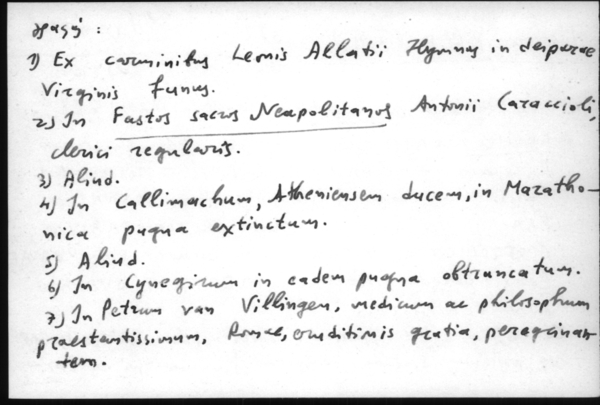 1) Ex carminibus Leonis Allatii Hymnus in deiparae
Virginis funus.
2) In Fastos sacros Neapolitanos Antonii Caraccioli,
clerici regularis.
3) Aliud.
4) In Callimachum, Atheniensem ducem, in Maratho-
nica pugna extinctum.
5) Aliud.
6) In Cynegirum in eadem pugna obtruncatum.
7) In Petrum van Villingen, medicum ac philosophum
praestantissimum, Romae, eruditionis gratia, peregrinan-
tem.